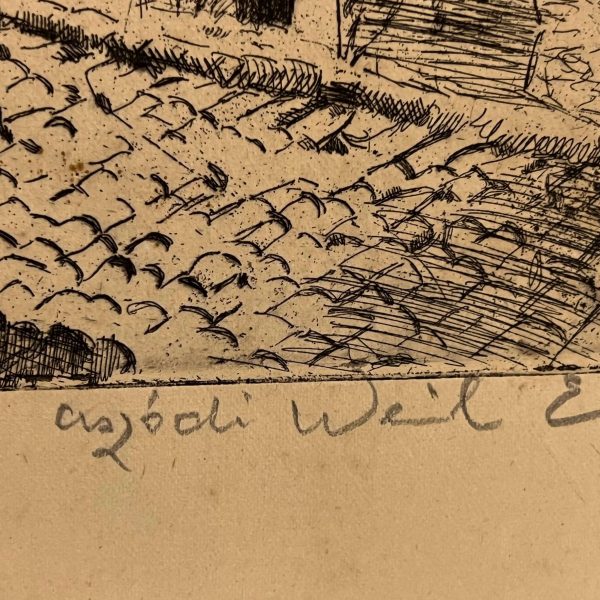 aszódi Weil E